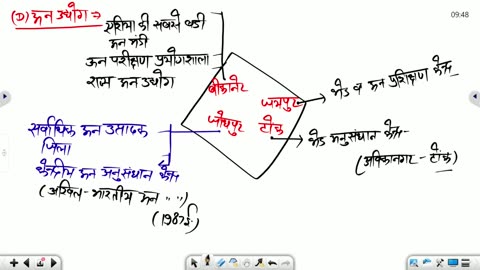 (D) ऊन उद्योग ⇒
09:48
एशिया की सबसे बड़ी
ऊन मंडी
ऊन परीक्षण प्रयोगशाला
राज्य ऊन उद्योग
बीकानेर
जयपुर → भेड़ व ऊन प्रशिक्षण केन्द्र
जोधपुर
टोंक → भेड़ अनुसंधान केन्द्र
(अविकानगर - टोंक)
सर्वाधिक ऊन उत्पादक
जिला
केन्द्रीय ऊन अनुसंधान केन्द्र
(अखिल-भारतीय ऊन " ")
(1987 ई.)